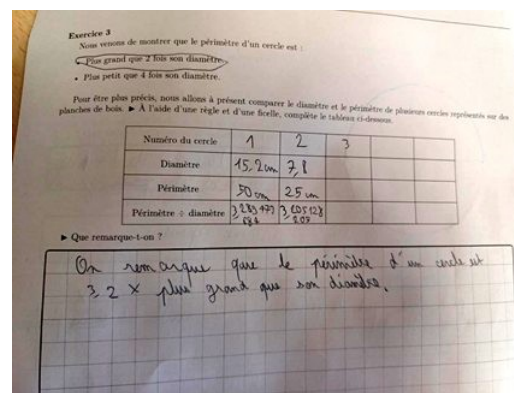 Exercice 3
Nous venons de montrer que le périmètre d'un cercle est :
Plus grand que 2 fois son diamètre.
• Plus petit que 4 fois son diamètre.
Pour être plus précis, nous allons à présent comparer le diamètre et le périmètre de plusieurs cercles représentés sur des
planches de bois. ► À l'aide d'une règle et d'une ficelle, complète le tableau ci-dessous.
Numéro du cercle 1 2 3
Diamètre 15,2 cm 7,8
Périmètre 50 cm 25 cm
Périmètre ÷ diamètre 3,289473 3,205128
684 207
► Que remarque-t-on ?
On remarque que le périmètre d'un cercle est
3,2 × plus grand que son diamètre.